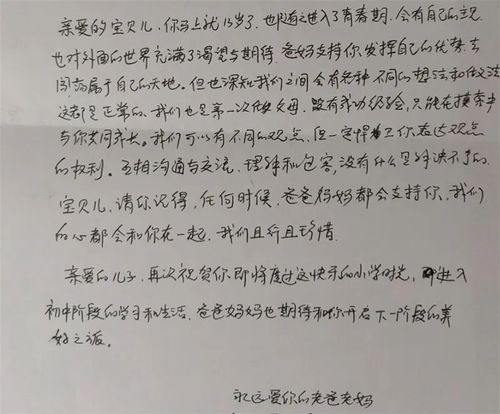 亲爱的宝贝儿，你马上就13岁了，也即将进入了青春期，会有自己的主见
也对外面的世界充满了渴望与期待，爸妈支持你发挥自己的优势去
闯荡属于自己的天地。但也深知我们之间会有各种不同的想法和做法
这都是正常的，我们也是第一次做父母，没有成功经验，只能在摸索中
与你共同成长。我们可以有不同的观点，但一定捍卫你表达观点
的权利。互相沟通与交流，理解和包容，没有什么是解决不了的。
宝贝儿，请你记得，任何时候，爸爸妈妈都会支持你，我们
的心都会和你在一起，我们且行且珍惜
亲爱的儿子，再次祝贺你即将度过这快乐的小学时光，进入
初中阶段的学习和生活，爸爸妈妈也期待和你开启下一阶段的美
好之旅。
永远爱你的老爸老妈